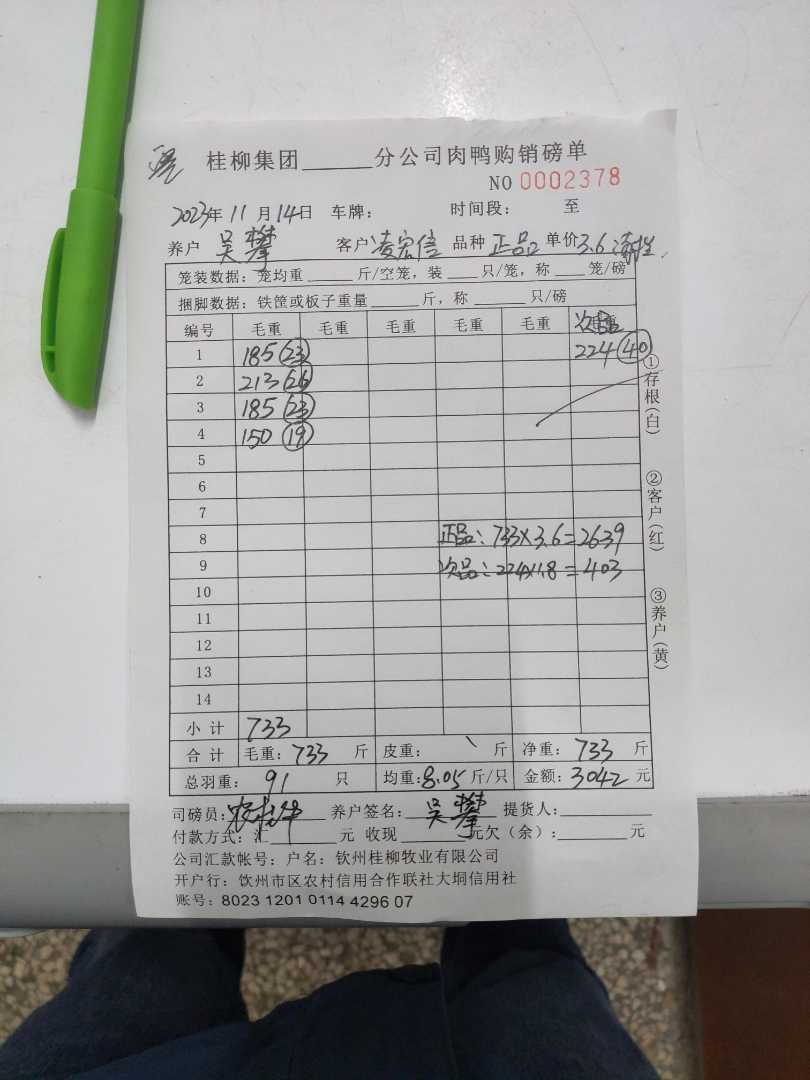 桂柳集团______分公司肉鸭购销磅单
NO 0002378
2023年 11 月 14日 车牌: 时间段: 至
养户 吴攀 客户 凌宏信 品种 正品 单价 3.6
笼装数据: 笼均重 ______ 斤/空笼, 装 ____ 只/笼, 称 ____ 笼/磅
捆脚数据: 铁筐或板子重量 ______ 斤, 称 ______ 只/磅
编号 毛重 毛重 毛重 毛重 毛重 次品
1 185 (23) 224 (40)
2 213 (26)
3 185 (23)
4 150 (19)
5
6
7
8 正品: 733×3.6=2639
9 次品: 224×1.8=403
10
11
12
13
14
小 计 733
合 计 毛重: 733 斤 皮重: 斤 净重: 733 斤
总羽重: 91 只 均重: 8.05 斤/只 金额: 3042 元
司磅员: 养户签名: 吴攀 提货人:
付款方式: 汇______元 收现______元欠(余):______元
公司汇款帐号: 户名: 钦州桂柳牧业有限公司
开户行: 钦州市区农村信用合作联社大垌信用社
账号: 8023 1201 0114 4296 07
①存根(白)
②客户(红)
③养户(黄)